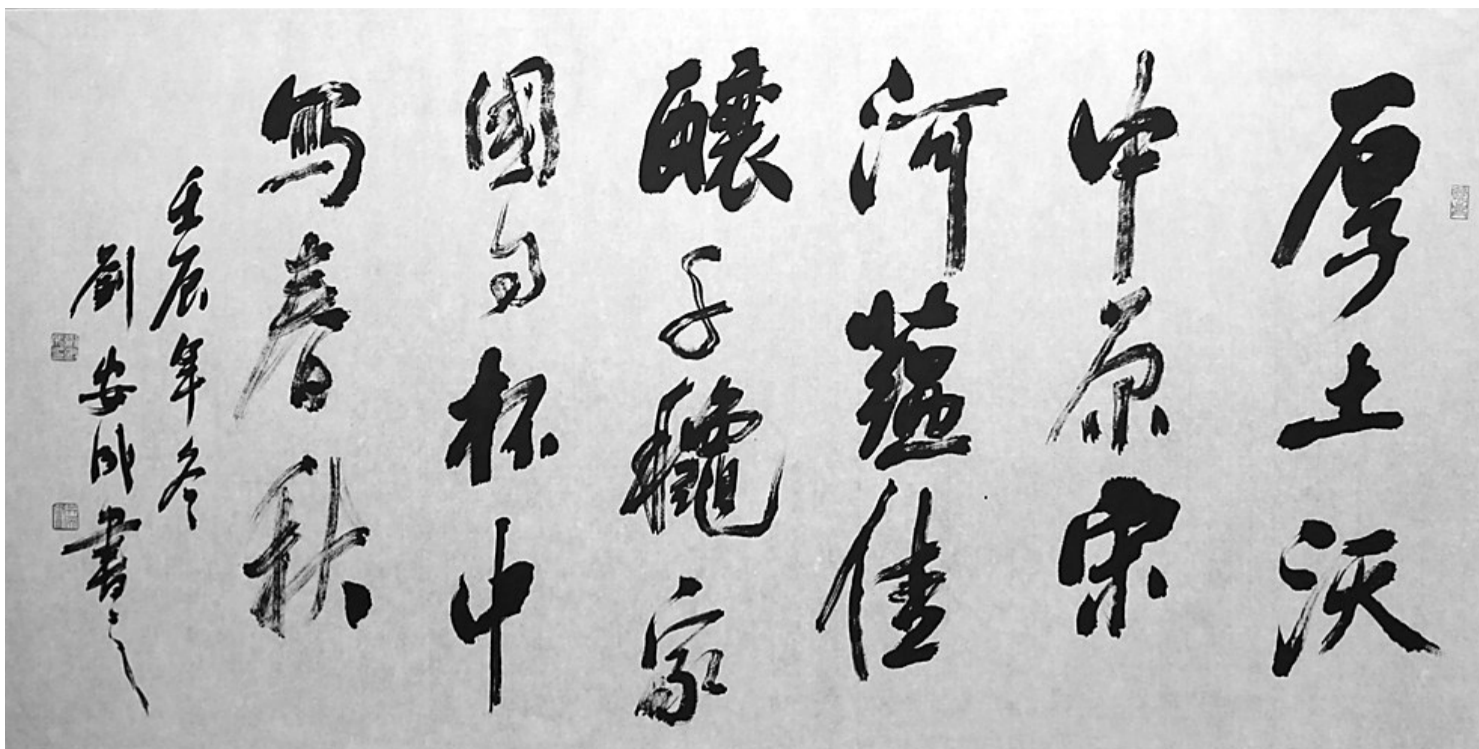 厚土沃
中原宋
河蘊佳
釀千龝家
國杯中
寫春秋
壬辰年冬
劉安成書之